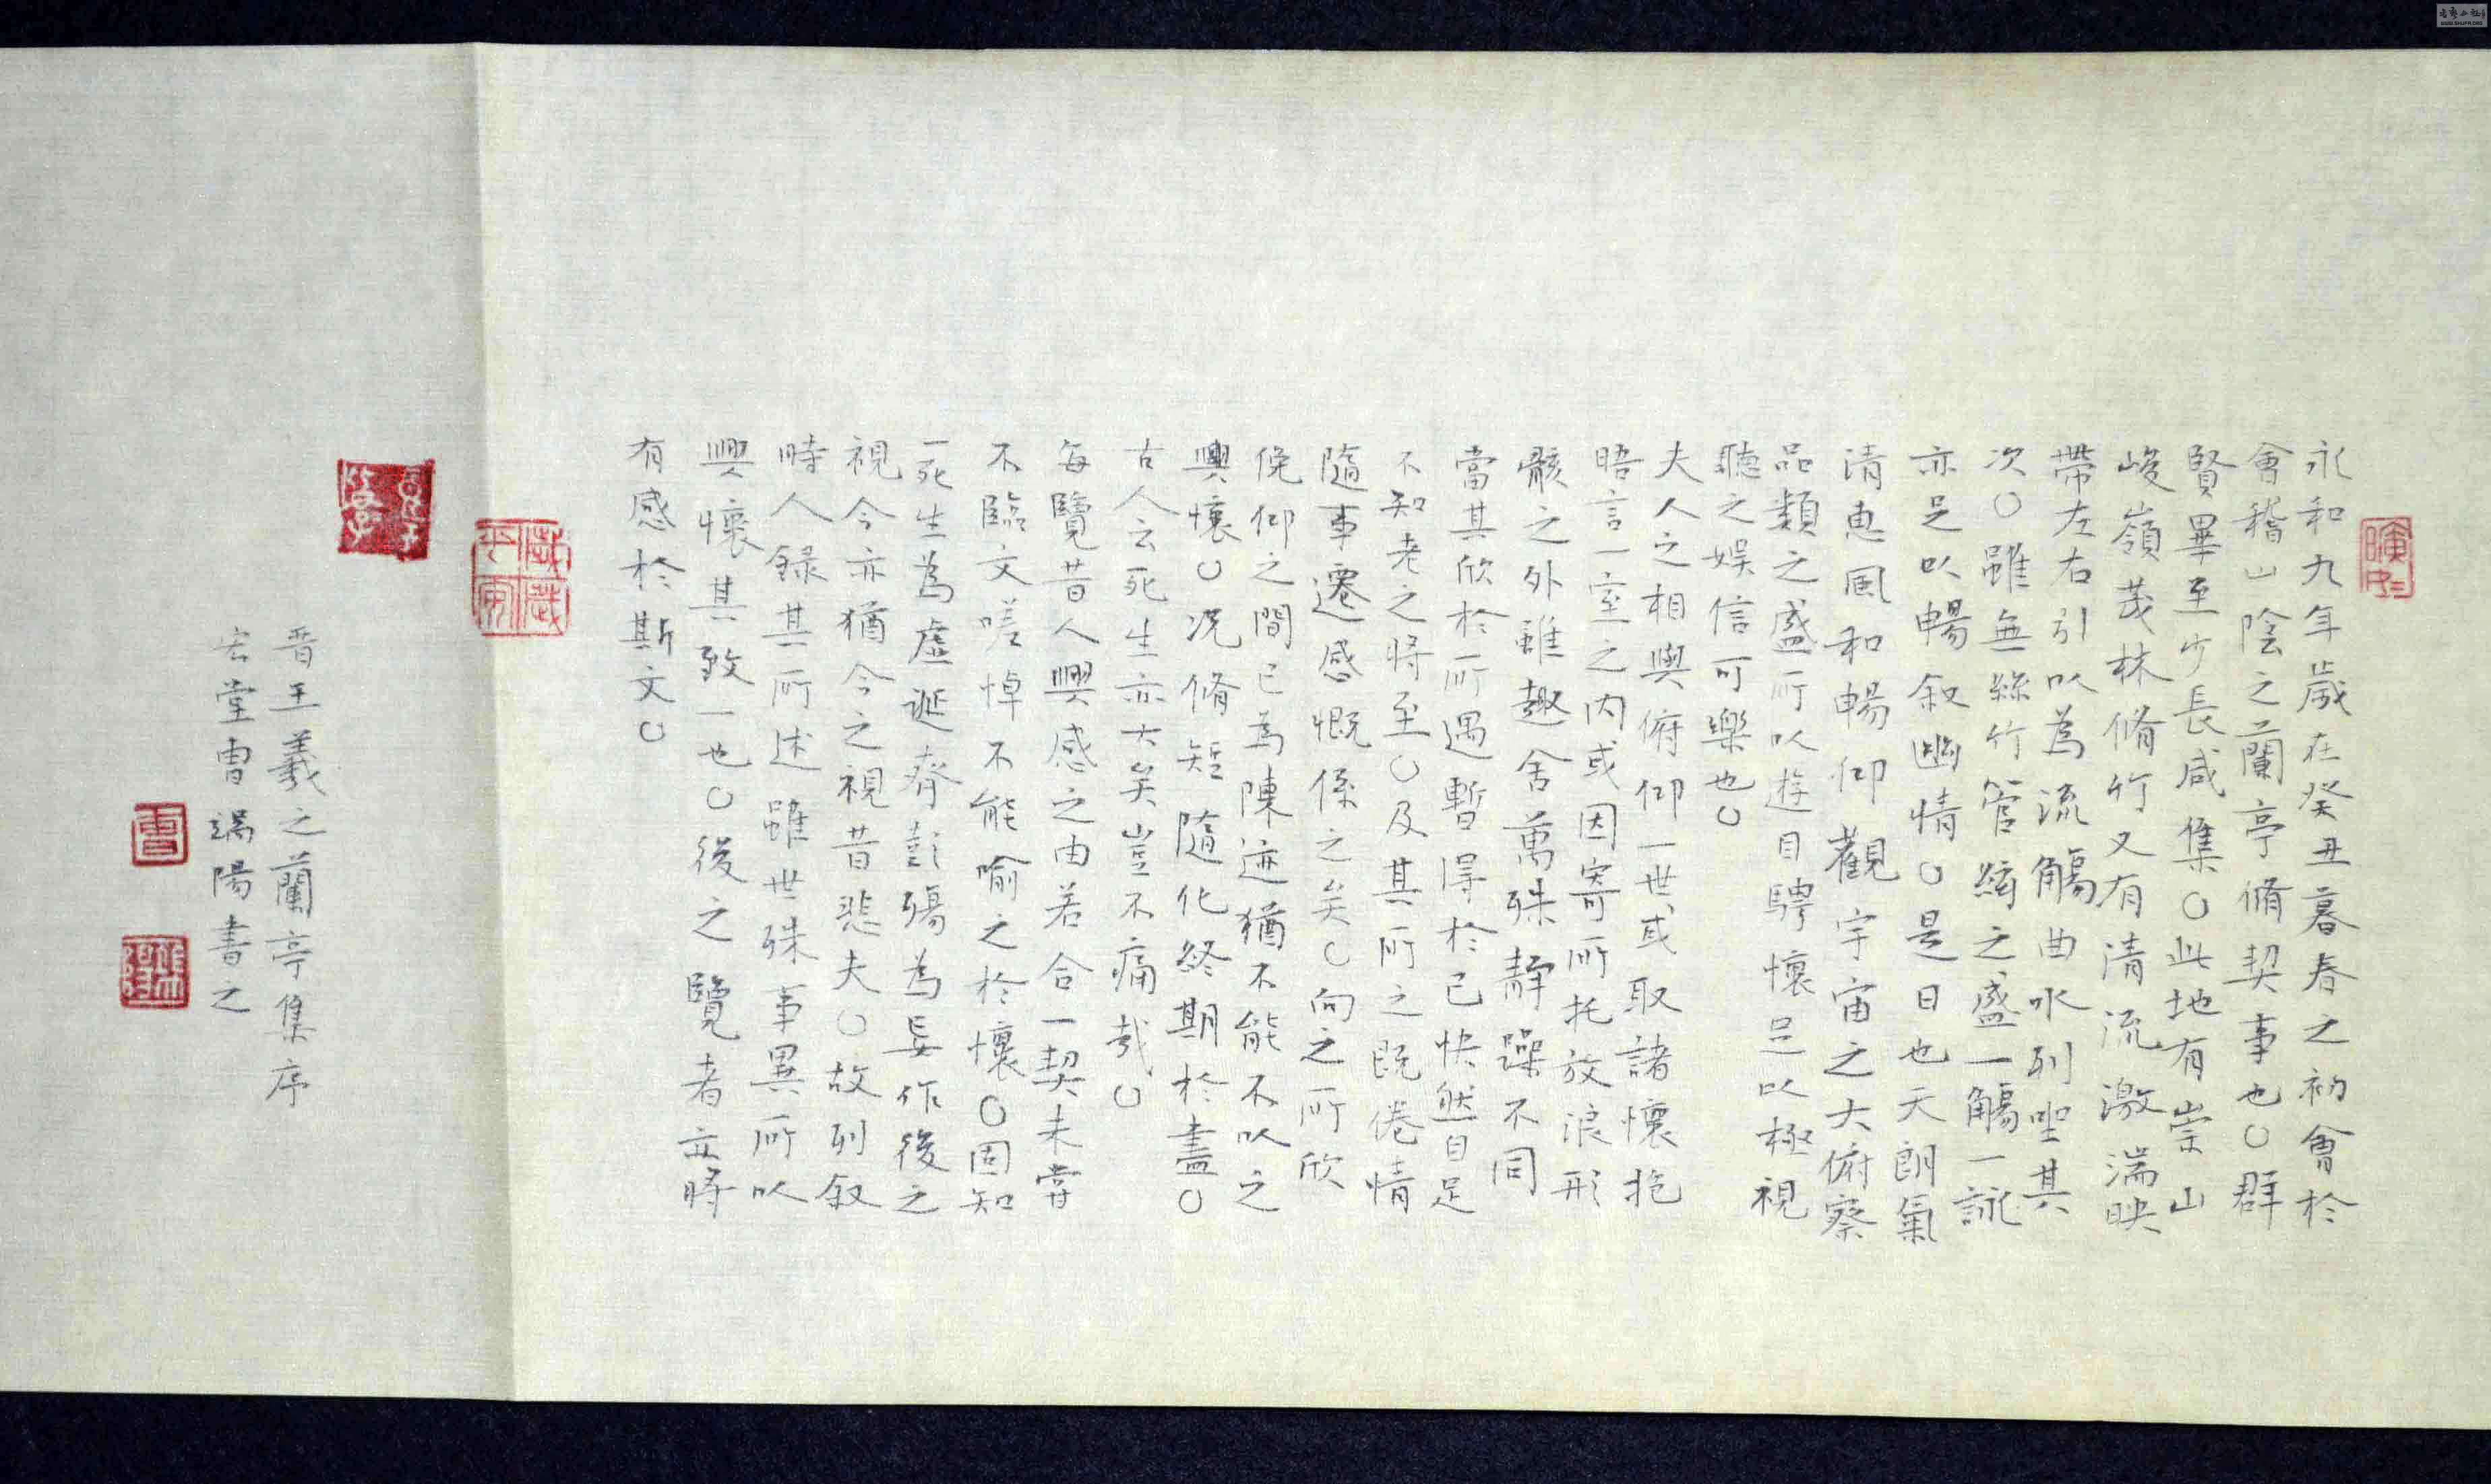 永和九年歲在癸丑暮春之初會於
會稽山陰之蘭亭脩契事也○群
賢畢至少長咸集○此地有崇山
峻嶺茂林脩竹又有清流激湍映
帶左右引以為流觴曲水列坐其
次○雖無絲竹管絃之盛一觴一詠
亦足以暢叙幽情○是日也天朗氣
清惠風和暢仰觀宇宙之大俯察
品類之盛所以遊目騁懷足以極視
聽之娛信可樂也○
夫人之相與俯仰一世或取諸懷抱
晤言一室之内或因寄所托放浪形
骸之外雖趣舍萬殊靜躁不同
當其欣於所遇暫得於己快然自足
不知老之将至○及其所之既倦情
隨事遷感慨係之矣○向之所欣
俛仰之間已為陳迹猶不能不以之
興懷○况脩短隨化終期於盡○
古人云死生亦大矣豈不痛哉○
每覽昔人興感之由若合一契未嘗
不臨文嗟悼不能喻之於懷○固知
一死生為虛誕齊彭殤為妄作後之
視今亦猶今之視昔悲夫○故列叙
時人録其所述雖世殊事異所以
興懷其致一也○後之覽者亦将
有感於斯文○
晋王羲之蘭亭集序
宏堂曹端陽書之
歲歲平安
曹
端陽